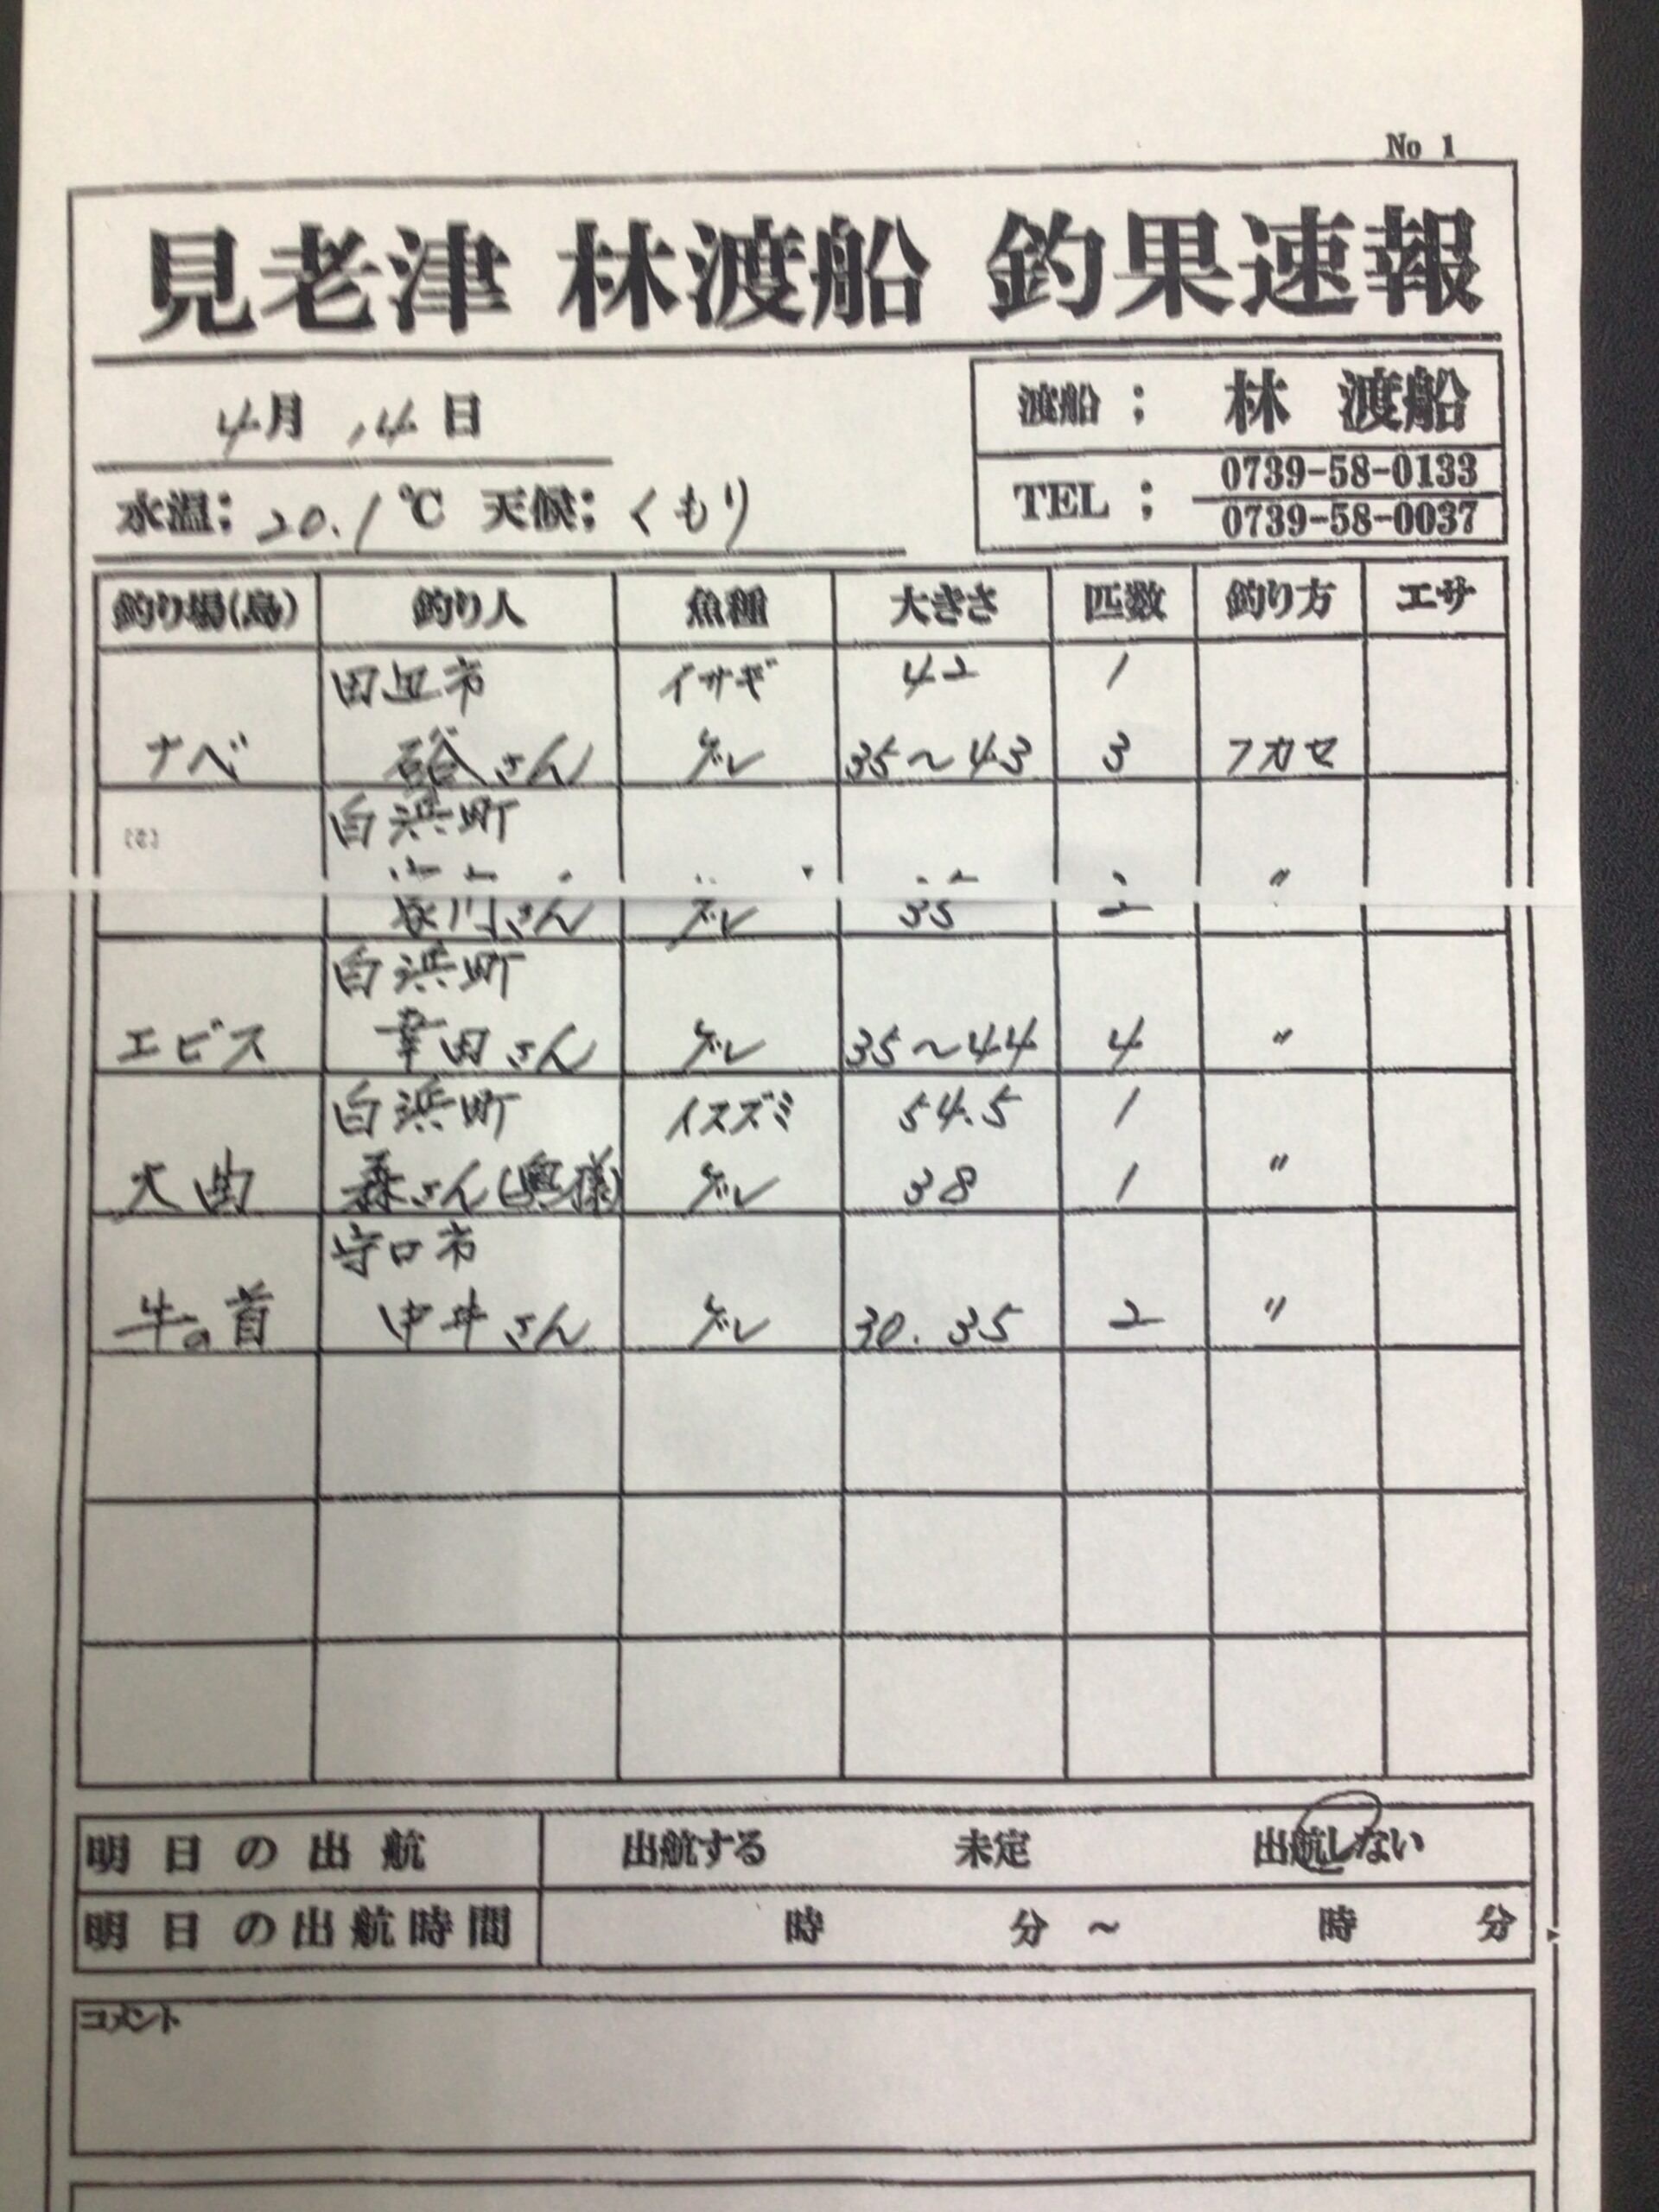 No 1
見老津 林渡船 釣果速報
4月 14日
渡船 ; 林 渡船
水温: 20.1 ℃ 天候: くもり
TEL ; 0739-58-0133
0739-58-0037
釣り場(島) 釣り人 魚種 大きさ 匹数 釣り方 エサ
田辺市 イサギ 42 1
ナベ さん グレ 35〜43 3 フカセ
白浜町
さん グレ 35 2 〃
白浜町
エビス 幸田さん グレ 35〜44 4 〃
白浜町 イスズミ 54.5 1
大曲 森さん(奥様) グレ 38 1 〃
守口市
牛の首 中井さん グレ 30. 35 2 〃
明日の出航 出航する 未定 出航しない
明日の出航時間 時 分 ~ 時 分
コメント